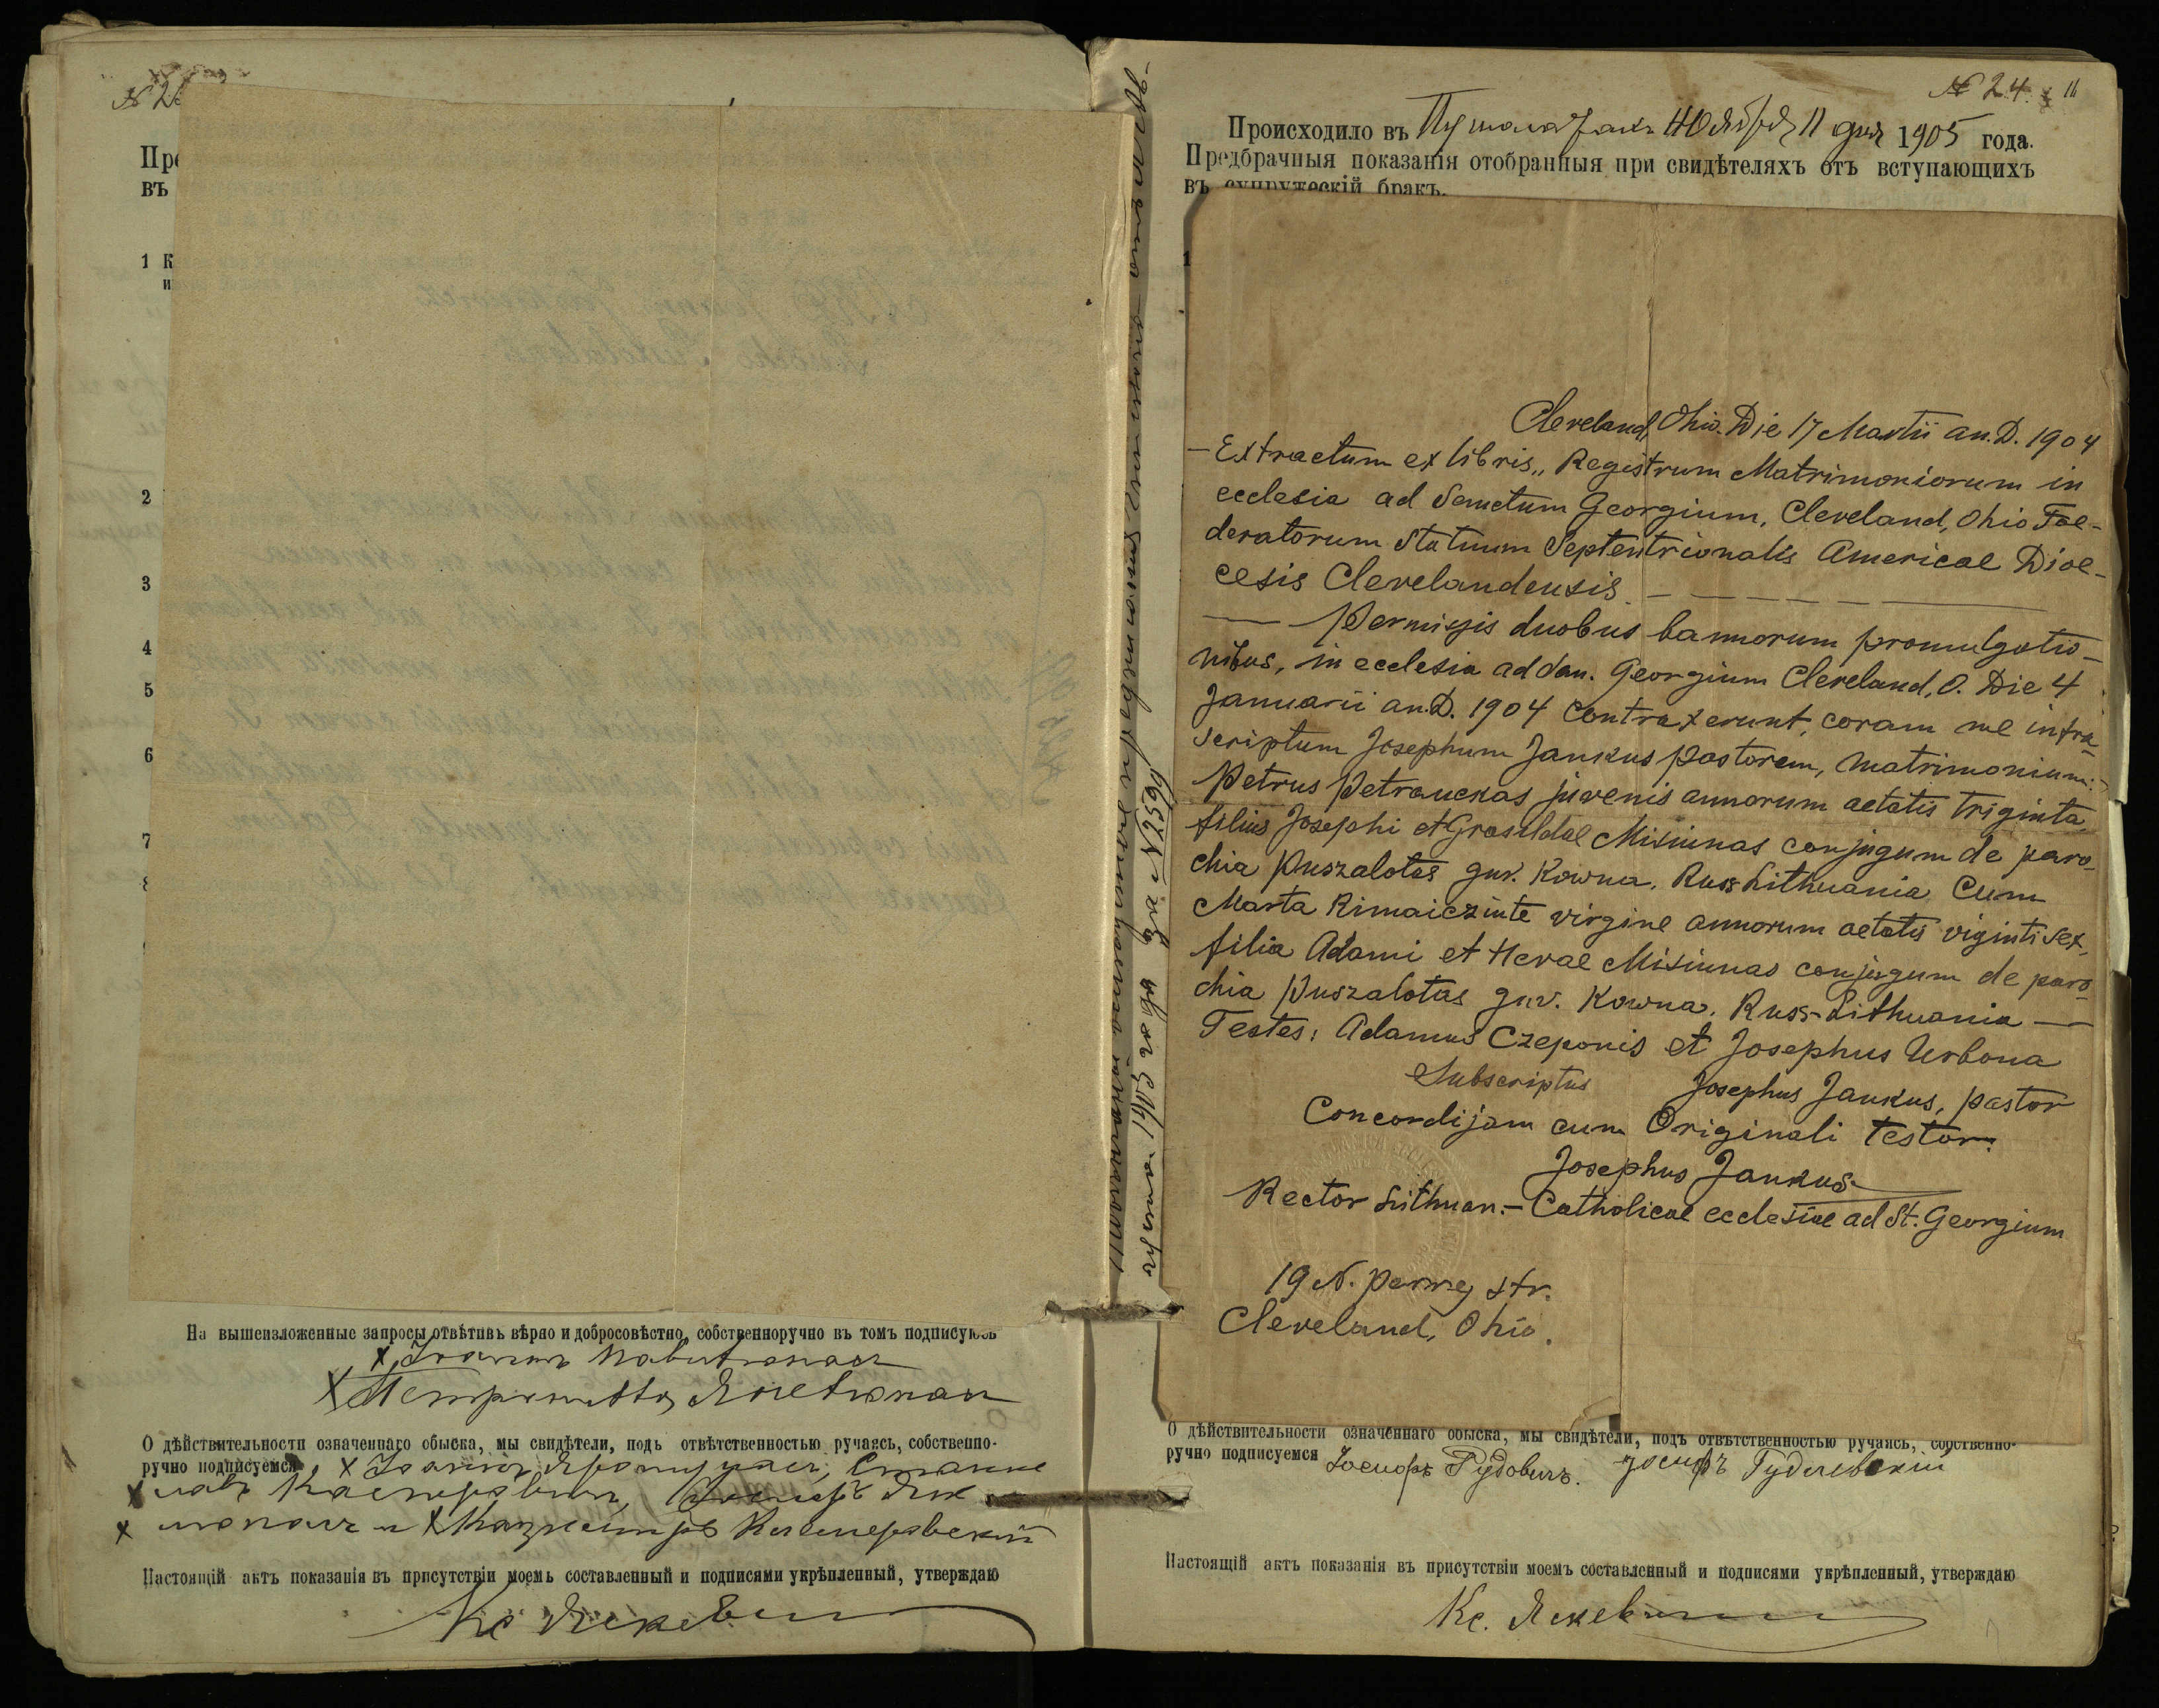 № 2
Пре
въ
1 К
и
2
3
4
5
6
7
8
На вышеизложенные запросы отвѣтивъ вѣрно и добросовѣстно, собственноручно въ томъ подписуюсь
О дѣйствительности означеннаго обыска, мы свидѣтели, подъ отвѣтственностью ручаясь, собственно-
ручно подписуемся
Настоящій актъ показанія въ присутствіи моемъ составленный и подписями укрѣпленный, утверждаю
1905 года за № 2590
№ 24
Происходило въ ноября 11 дня 1905 года.
Предбрачныя показанія отобранныя при свидѣтеляхъ отъ вступающихъ
въ супружескій бракъ.
1
Cleveland, Ohio. Die 17 Martii an. D. 1904
- Extractum ex libris „ Registrum Matrimoniorum in
ecclesia ad Sanctum Georgium, Cleveland, Ohio Foe-
deratorum Statuum Septentrionalis Americae Dioe-
cesis Clevelandensis. -
- Permissis duobus bannorum promulgatio-
nibus, in ecclesia ad San. Georgium Cleveland, O. Die 4
Januarii an. D. 1904 Contraxerunt, coram me infra-
scriptum Josephum Jankus pastorem, matrimonium:-
Petrus Petrauckas juvenis annorum aetatis triginta,
filius Josephi et Grasildae Misiunas conjugum de paro-
chia Puszalotas guv. Kowna, Russ Lithuania Cum
Marta Rimaicziute virgine annorum aetatis viginti sex,
filia Adami et Hevae Misiunas conjugum de paro-
chia Puszalotas guv. Kowna. Russ-Lithuania —
Testes: Adamus Czeponis et Josephus Urbona
Subscriptus Josephus Jankus, pastor
Concordijam cum Originali testor:
Josephus Jankus.
Rector Lithuan.- Catholicae ecclesiae ad St. Georgium
19 N. Perry str.
Cleveland, Ohio.
О дѣйствительности означеннаго обыска, мы свидѣтели, подъ отвѣтственностью ручаясь, собственно-
ручно подписуемся Іосифъ Рудовичъ. Іосифъ Гудлевскій
Настоящій актъ показанія въ присутствіи моемъ составленный и подписями укрѣпленный, утверждаю
Кс.